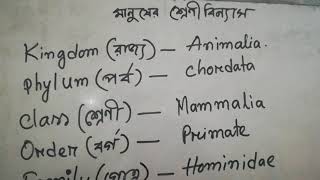 মানুষের শ্রেণীবিন্যাস
Kingdom (রাজ্য) — Animalia.
Phylum (পর্ব) — Chordata
Class (শ্রেণী) — Mammalia
Order (বর্গ) — Primate
Family (গোত্র) — Hominidae